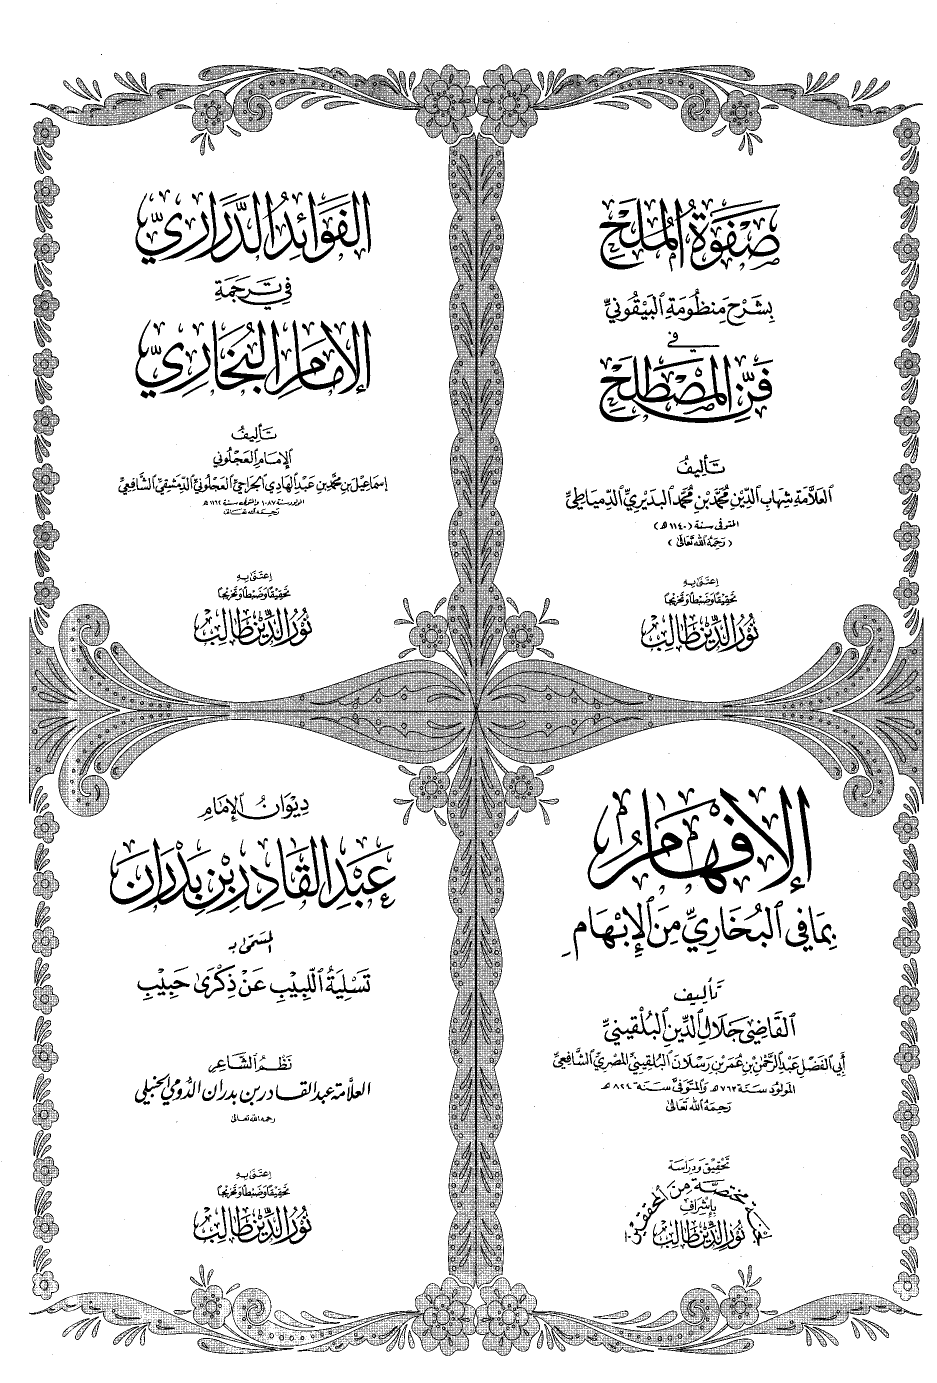 صَفْوَةُ المُلَحِ
بِشَرْحِ مَنظُومَةِ البَيْقُونيِّ
في
فَنِّ المُصْطَلَحِ
تَأليفُ
العَلَّامَةِ شِهَابِ الدِّيْنِ مُحَمَّدِ بْنِ مُحَمَّد البُدَيْرِيِّ الدِّميَاطِيِّ
المتوفى سنة (١١٤٠ هـ)
(رَحِمَهُ اللهُ تَعَالَىٰ)
اعتَنَىٰ بِهِ
تَحقِيقًا وَضَبْطًا وَتَخرِيجًا
نُورُ الدِّيْن طَالِب
الفَوَائِدُ الدَّرَارِيّ
في تَرجَمَةِ
الإِمَامِ البُخَارِيِّ
تَأليفُ
الإمَامِ العَجْلُوني
إسمَاعيل بن محمَّد بن عَبد الهَادِي الجَرَّاحِيِّ العَجْلُونيِّ الدِّمَشِقِيِّ الشَّافِعِيِّ
المولود سنة ١٠٨٧ والمتوفى سنة ١١٦٢ هـ
رَحِمَهُ الله تَعَالىٰ
اعتَنَىٰ بِهِ
تَحقِيقًا وَضَبْطًا وَتَخرِيجًا
نُورُ الدِّيْن طَالِب
الإِفْهَامُ
بِمَا في البُخَارِيِّ مِنَ الإِبْهَامِ
تَأليف
القَاضِي جَلَالِ الدِّينِ البُلْقِينيِّ
أَبِي الفَضْل عَبد الرَّحمٰن بْنِ عُمَرَ بْنِ رَسْلَانَ البُلقِينيِّ المصريِّ الشَّافِعيِّ
المَولُود سَنَة ٧٦٣ هـ وَالمُتَوَفَّىٰ سَنَة ٨٢٤ هـ
رَحِمَهُ اللهُ تَعَالَىٰ
تَحقِيق وَدِرَاسَة
لجنة مختصَّة مِنَ المحققين
بإشراف
نُورِ الدِّيْن طَالِب
دِيْوَانُ الإِمَامِ
عَبْدِ القَادِرِ بْنِ بَدْرَان
المسَمَّىٰ بـ
تَسْلِيَةُ اللَّبِيْبِ عَنْ ذِكْرَىٰ حَبِيْبٍ
نَظْمُ الشَّاعِرِ
العلَّامَة عبد القادر بن بدران الدُّومي الحنبلي
رحمه الله تعالىٰ
اعتَنَىٰ بِهِ
تَحقِيقًا وَضَبْطًا وَتَخرِيجًا
نُورُ الدِّيْن طَالِب